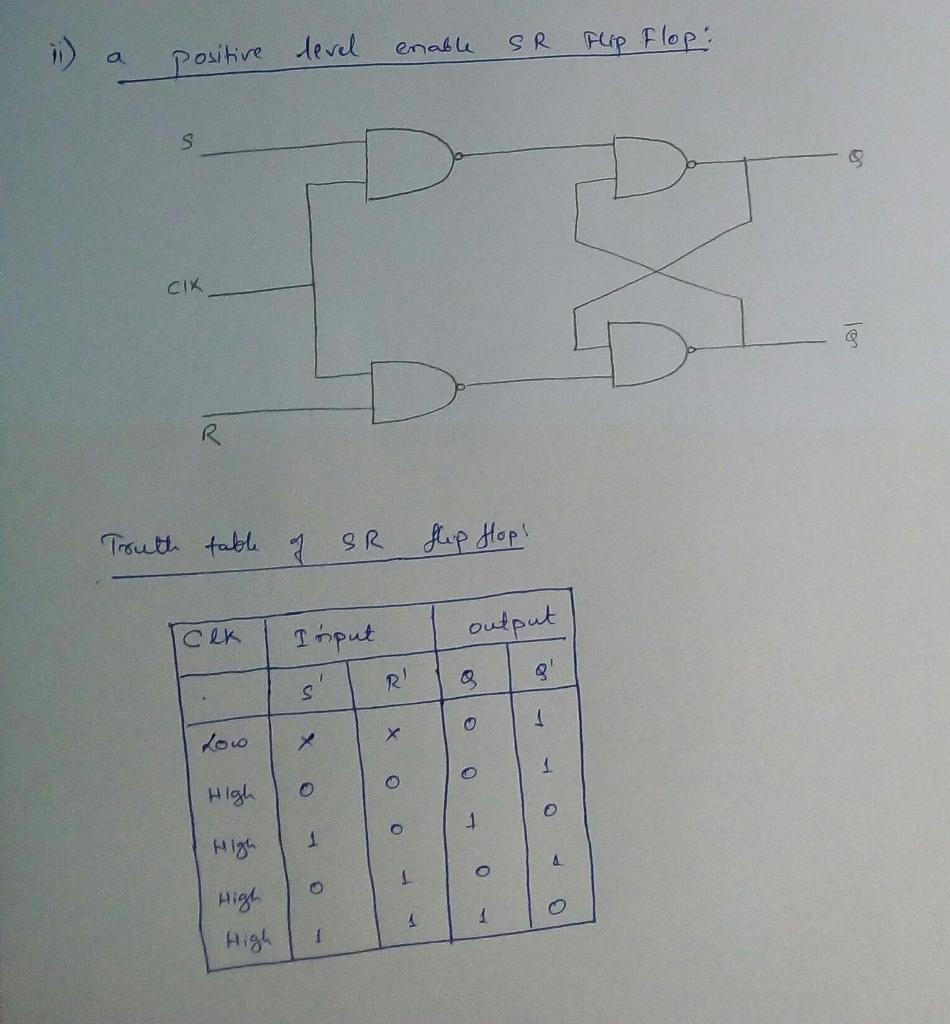 ii) a positive level enable SR Flip Flop:
S
Q
Clk
Q̅
R
Truth table of SR flip flop:
Clk Input output
S' R' Q Q'
Low x x 0 1
High 0 0 0 1
High 1 0 1 0
High 0 1 0 1
High 1 1 1 0